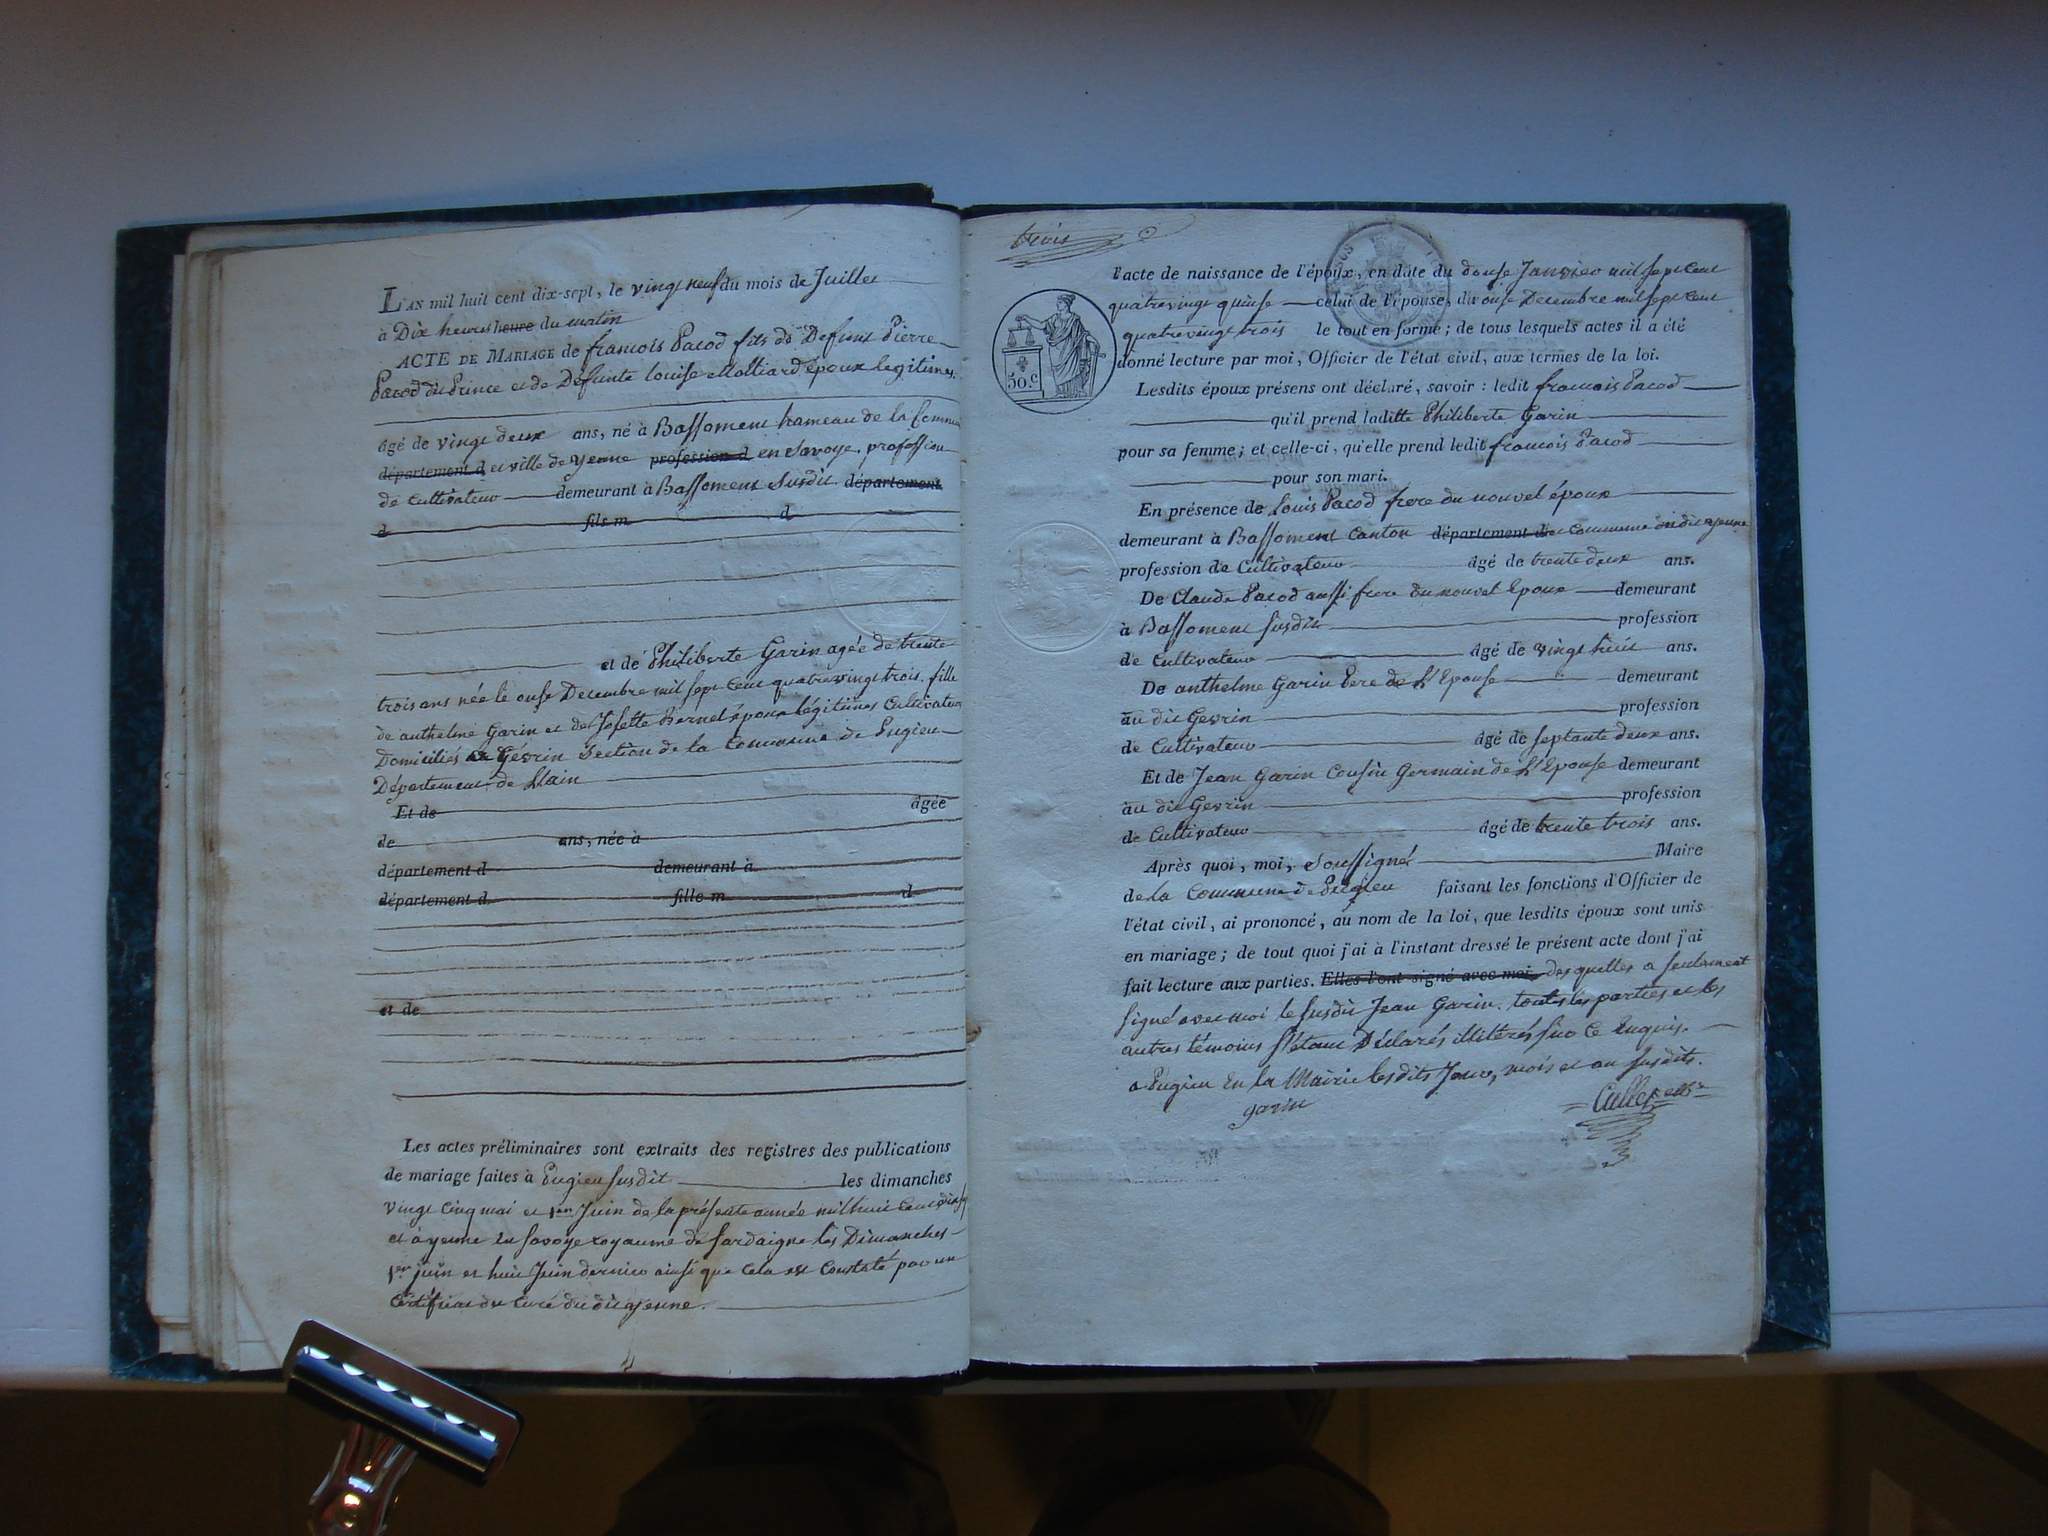 L'AN mil huit cent dix-sept, le vingt neuf du mois de Juillet
à Dix heures heure du matin
ACTE DE MARIAGE de francois Pacod fils de Defunt Pierre
Pacod dit Prince et de Defunte louise Molliard époux legitimes.
âgé de vingt deux ans, né à Bassoment hameau de la Commune
département d et ville de yenne profession d en Savoye, profession
de Cultivateur demeurant à Bassoment susdit département
d fils m d
et de Philiberte Garin agée de trente
trois ans née le onse Decembre mil sept cent quatre vingt trois, fille
de anthelme Garin et de Josette Bornel époux légitimes Cultivateurs
Domiciliés à Gévrin Section de la Commune de Pugieu
Département de Lain
Et de âgée
de ans, née à
département d demeurant à
département d fille m d
et de
Les actes préliminaires sont extraits des registres des publications
de mariage faites à Pugieu susdit les dimanches
vingt cinq mai et 1er Juin de la présente année mil huit cent dix sept
et à yenne en Savoye royaume de Sardaigne les Dimanches
1er juin et huit Juin dernier ainsi que cela est Constaté par un
Certificat du Curé du dit yenne.
trois
l'acte de naissance de l'époux, en date du douse Janvier mil sept cent
quatre vingt quinse celui de l'épouse, du onse Decembre mil sept cent
quatre vingt trois le tout en forme; de tous lesquels actes il a été
donné lecture par moi, Officier de l'état civil, aux termes de la loi.
50.c
Lesdits époux présens ont déclaré, savoir : ledit francois Pacod
qu'il prend laditte Philiberte Garin
pour sa femme; et celle-ci, qu'elle prend ledit francois Pacod
pour son mari.
En présence de Louis Pacod frere du nouvel époux
demeurant à Bassoment Canton département d et Commune du dit yenne
profession de Cultivateur âgé de trente deux ans.
De Claude Pacod aussi frere du nouvel Epoux demeurant
à Bassoment susdit profession
de Cultivateur âgé de vingt huit ans.
De anthelme Garin Pere de L'Epouse demeurant
au dit Gevrin profession
de Cultivateur âgé de septante deux ans.
Et de Jean Garin Cousin Germain de L'Epouse demeurant
au dit Gevrin profession
de Cultivateur âgé de trente trois ans.
Après quoi, moi, Soussigné Maire
de la Commune de Pugieu faisant les fonctions d'Officier de
l'état civil, ai prononcé, au nom de la loi, que lesdits époux sont unis
en mariage; de tout quoi j'ai à l'instant dressé le présent acte dont j'ai
fait lecture aux parties. Elles l'ont signé avec moi des quelles a seulement
signé avec moi le susdit Jean Garin, toutes les parties et les
autres témoins s'étant Déclarés illitérés sur ce Enquis.
a Pugieu En la Mairie lesdits Jour, mois et an susdits.
garin
Cullet